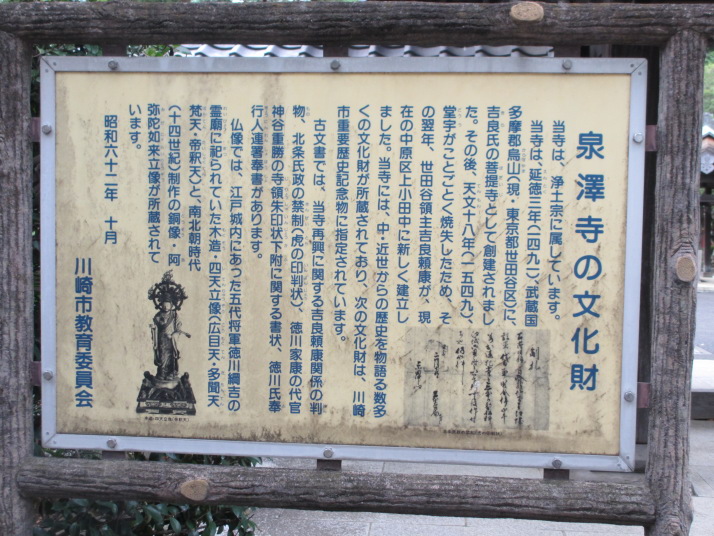 泉澤寺の文化財
当寺は、浄土宗に属しています。
当寺は、延徳三年（一四九一）、武蔵国
多摩郡烏山（現・東京都世田谷区）に、
吉良氏の菩提寺として創建されまし
た。その後、天文十八年（一五四九）、
堂宇がことごとく焼失したため、そ
の翌年、世田谷領主吉良頼康が、現
在の中原区上小田中に新しく建立し
ました。当寺には、中・近世からの歴史を物語る数多
くの文化財が所蔵されており、次の文化財は、川崎
市重要歴史記念物に指定されています。
古文書では、当寺再興に関する吉良頼康関係の判
物、北条氏政の禁制（虎の印判状）、徳川家康の代官
神谷重勝の寺領朱印状下附に関する書状、徳川氏奉
行人連署奉書があります。
仏像では、江戸城内にあった五代将軍徳川綱吉の
霊廟に祀られていた木造・四天立像（広目天・多聞天
梵天・帝釈天）と、南北朝時代
（十四世紀）制作の銅像・阿
弥陀如来立像が所蔵されて
います。
昭和六十二年　十月
川崎市教育委員会